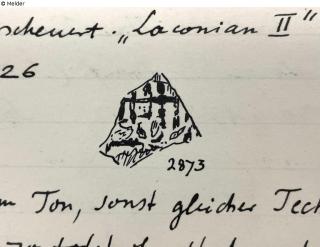 © Melder
scheuert. „Laconian II"
26
2873
m Ton, sonst gleicher Tech